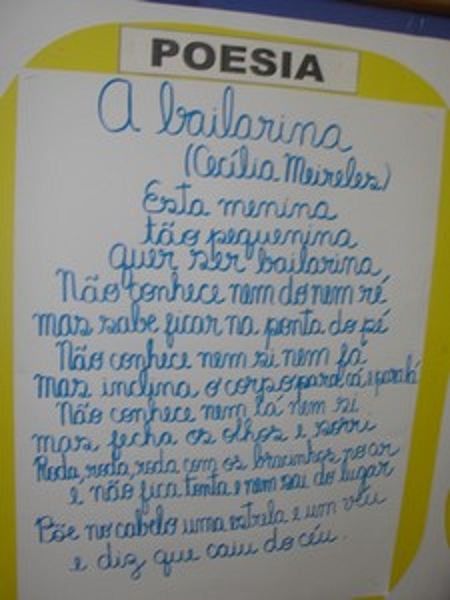 POESIA
A bailarina
(Cecília Meireles)
Esta menina
tão pequenina
quer ser bailarina,
Não conhece nem do nem ré
mas sabe ficar na ponta do pé
Não conhece nem si nem fá
mas inclina o corpo para cá e para lá
Não conhece nem lá nem si
mas fecha os olhos e sorri
Roda, roda, roda com os bracinhos no ar
e não fica tonta e nem sai do lugar
Põe no cabelo uma estrela e um véu
e diz que caiu do céu.